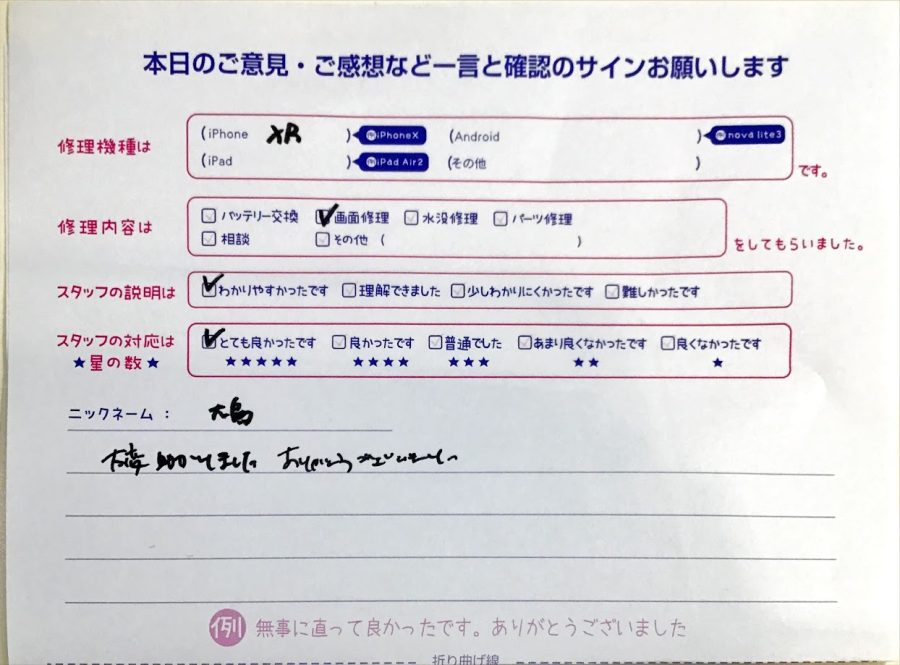 本日のご意見・ご感想など一言と確認のサインお願いします
修理機種は (iPhone XR ) 例iPhoneX (Android ) 例nova lite3
(iPad ) 例iPad Air2 (その他 ) です。
修理内容は □バッテリー交換 ☑画面修理 □水没修理 □パーツ修理
□相談 □その他 ( ) をしてもらいました。
スタッフの説明は ☑わかりやすかったです □理解できました □少しわかりにくかったです □難しかったです
スタッフの対応は ☑とても良かったです □良かったです □普通でした □あまり良くなかったです □良くなかったです
★星の数★ ★★★★★ ★★★★ ★★★ ★★ ★
ニックネーム： 大島
大変助かりました ありがとうございました。
例 無事に直って良かったです。ありがとうございました
折り曲げ線